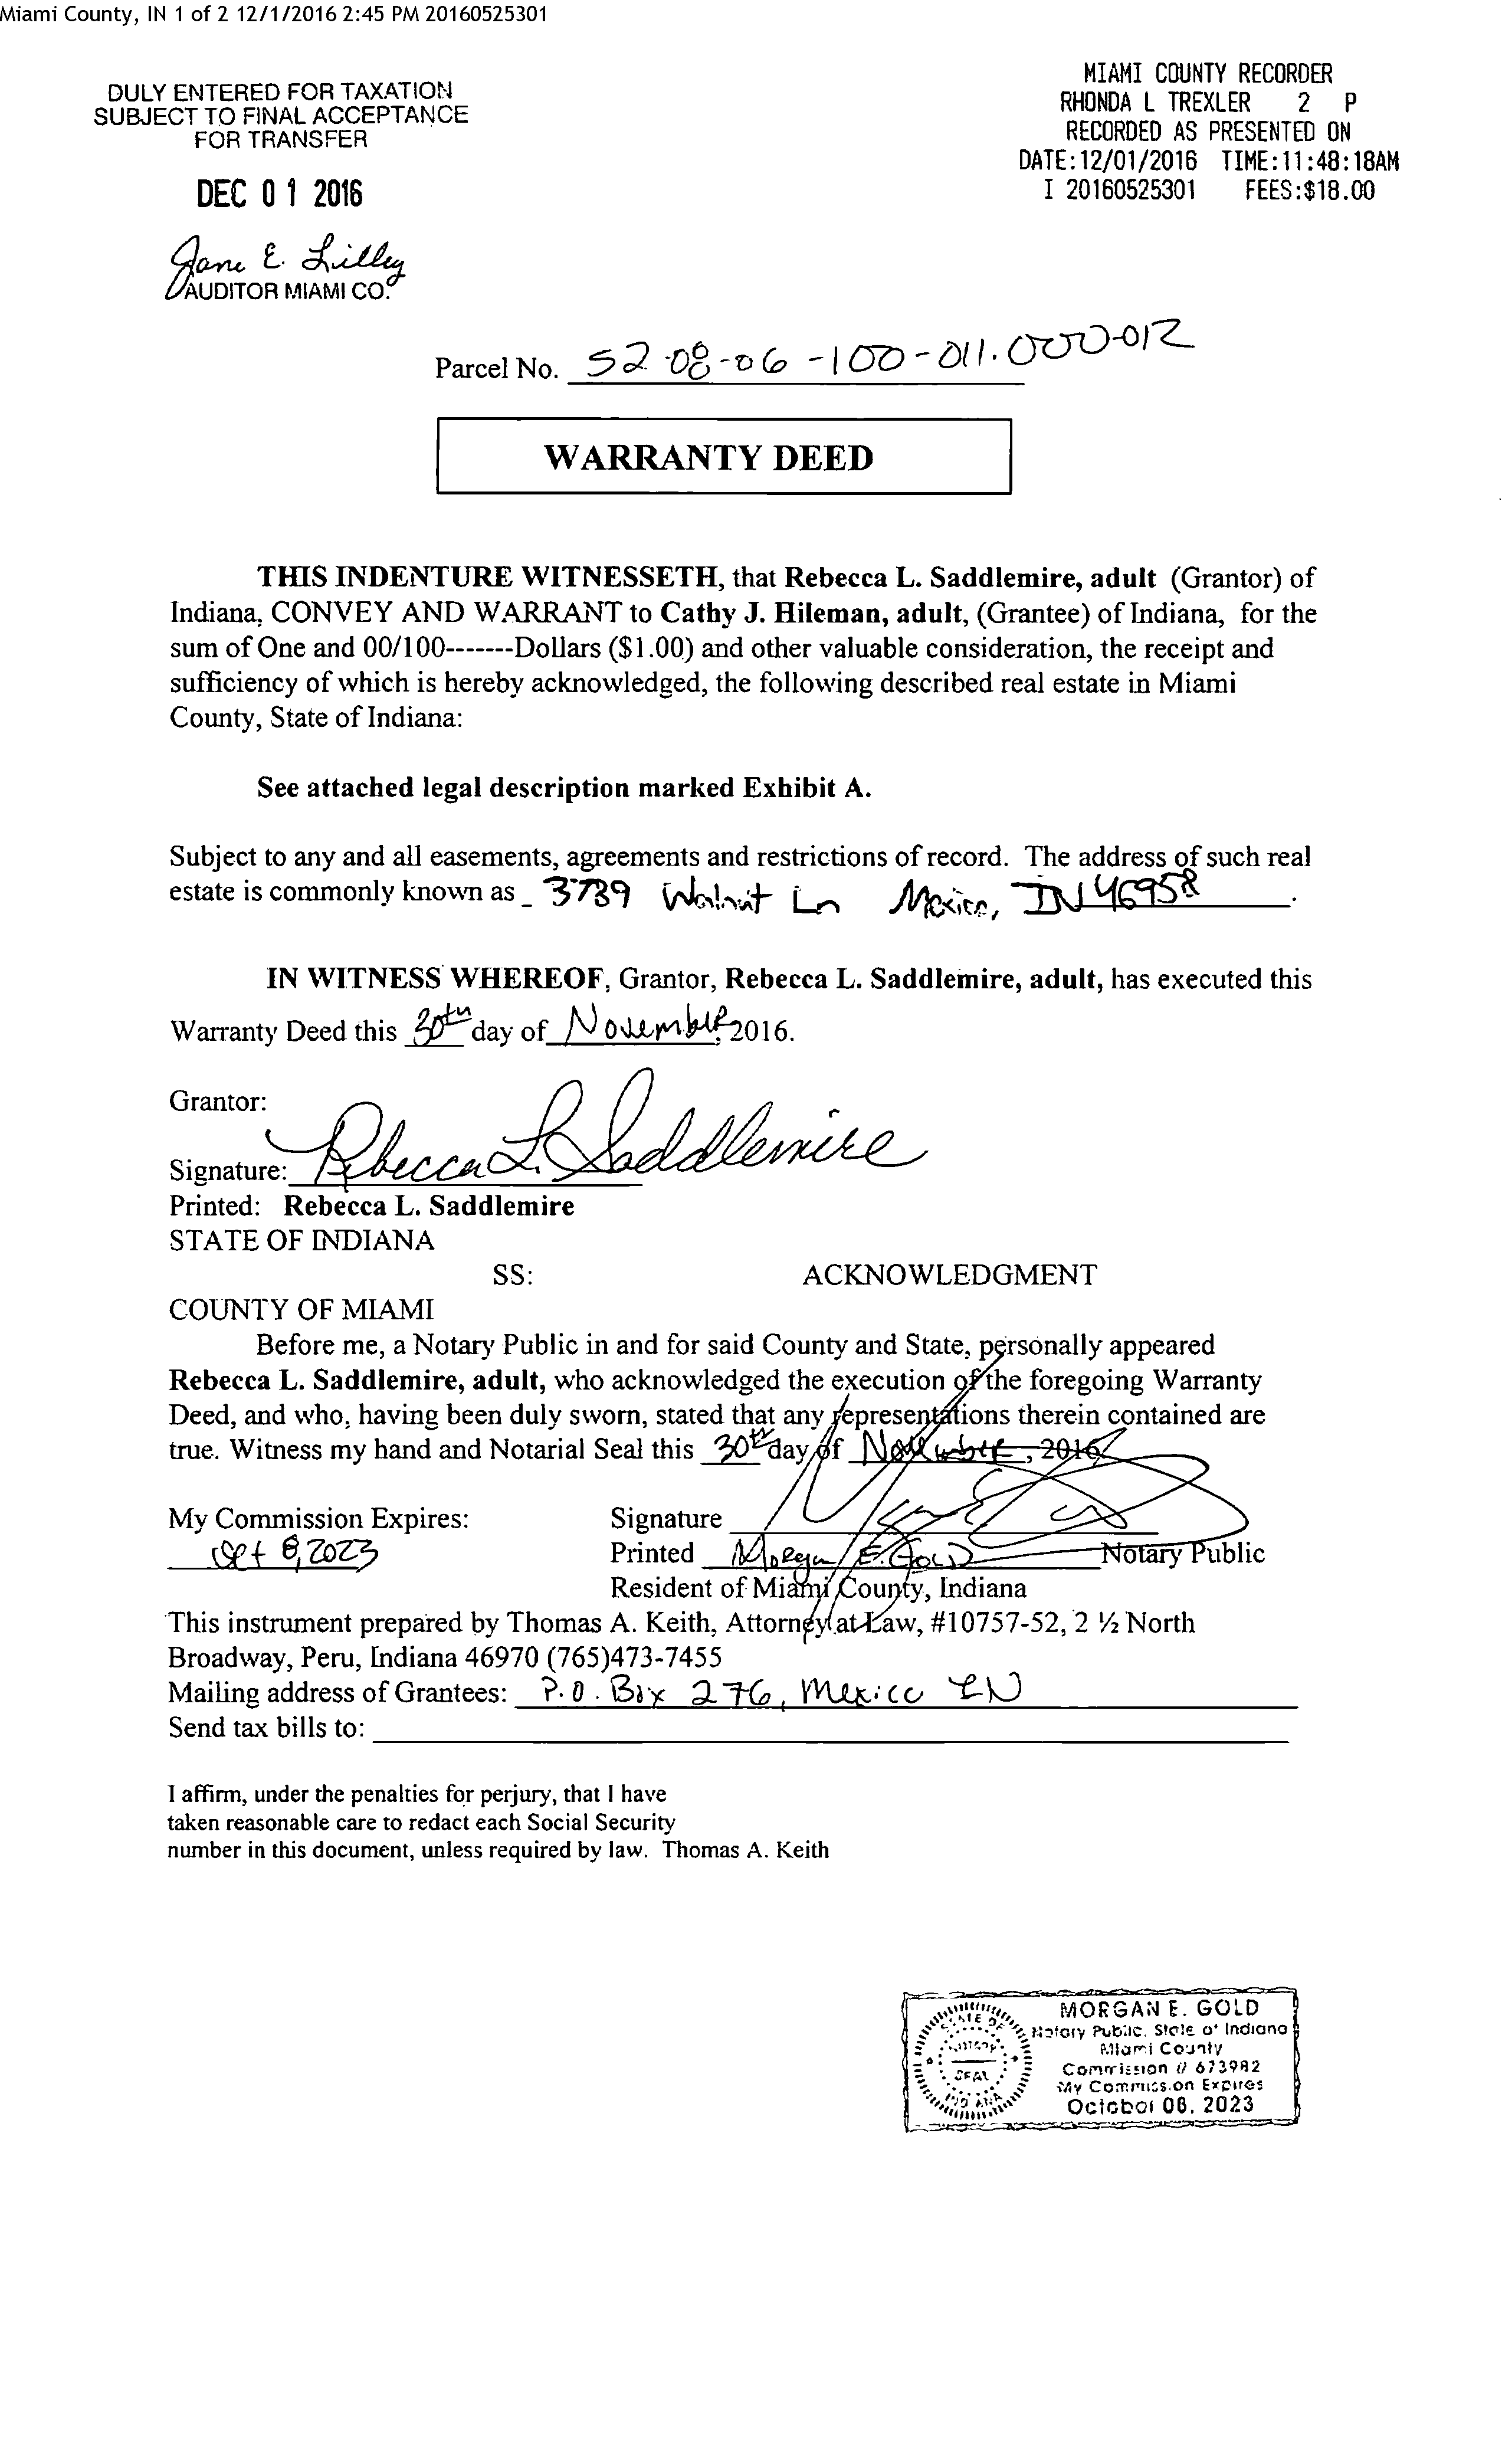 Miami County, IN 1 of 2 12/1/2016 2:45 PM 20160525301
DULY ENTERED FOR TAXATION
SUBJECT TO FINAL ACCEPTANCE
FOR TRANSFER
DEC 01 2016
Jane E. Lilley
AUDITOR MIAMI CO.
MIAMI COUNTY RECORDER
RHONDA L TREXLER 2 P
RECORDED AS PRESENTED ON
DATE:12/01/2016 TIME:11:48:18AM
I 20160525301 FEES:$18.00
Parcel No. 52-08-06-100-011.000-012
WARRANTY DEED
THIS INDENTURE WITNESSETH, that Rebecca L. Saddlemire, adult (Grantor) of
Indiana, CONVEY AND WARRANT to Cathy J. Hileman, adult, (Grantee) of Indiana, for the
sum of One and 00/100-------Dollars ($1.00) and other valuable consideration, the receipt and
sufficiency of which is hereby acknowledged, the following described real estate in Miami
County, State of Indiana:
See attached legal description marked Exhibit A.
Subject to any and all easements, agreements and restrictions of record. The address of such real
estate is commonly known as 3789 Walnut Ln Mexico, IN 46958.
IN WITNESS WHEREOF, Grantor, Rebecca L. Saddlemire, adult, has executed this
Warranty Deed this 30th day of November, 2016.
Grantor:
Signature: Rebecca L. Saddlemire
Printed: Rebecca L. Saddlemire
STATE OF INDIANA
SS: ACKNOWLEDGMENT
COUNTY OF MIAMI
Before me, a Notary Public in and for said County and State, personally appeared
Rebecca L. Saddlemire, adult, who acknowledged the execution of the foregoing Warranty
Deed, and who, having been duly sworn, stated that any representations therein contained are
true. Witness my hand and Notarial Seal this 30th day of November, 2016.
My Commission Expires: Signature
Oct 8, 2023 Printed Morgan E. Gold Notary Public
Resident of Miami County, Indiana
This instrument prepared by Thomas A. Keith, Attorney at Law, #10757-52, 2 ½ North
Broadway, Peru, Indiana 46970 (765)473-7455
Mailing address of Grantees: P.O. Box 276, Mexico IN
Send tax bills to:
I affirm, under the penalties for perjury, that I have
taken reasonable care to redact each Social Security
number in this document, unless required by law. Thomas A. Keith
MORGAN E. GOLD
Notary Public, State of Indiana
Miami County
Commission # 673982
My Commission Expires
October 08, 2023
STATE OF
NOTARY
SEAL
INDIANA